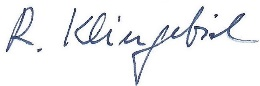 R. Klingebiel